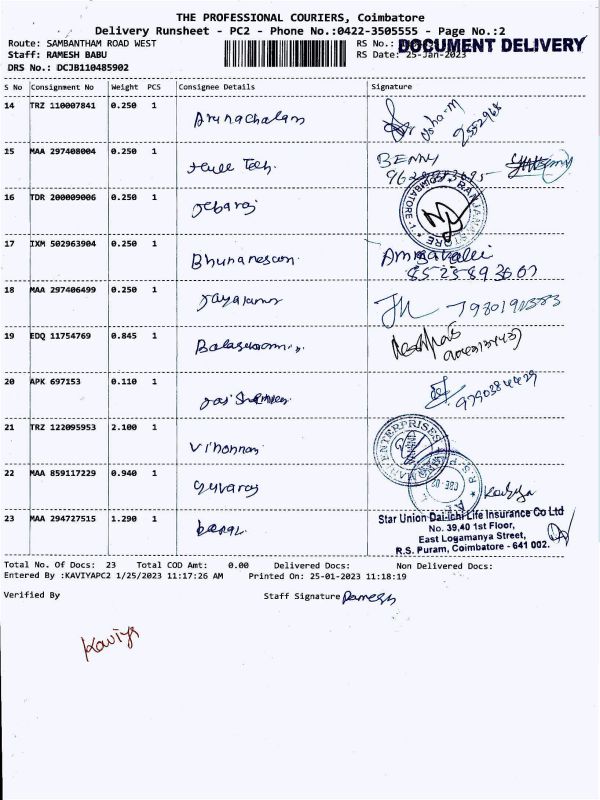 THE PROFESSIONAL COURIERS, Coimbatore
Delivery Runsheet - PC2 - Phone No.:0422-3505555 - Page No.:2
Route: SAMBANTHAM ROAD WEST RS No.: DOCUMENT DELIVERY
Staff: RAMESH BABU RS Date: 25-Jan-2023
DRS No.: DCJB110485902
S No Consignment No Weight PCS Consignee Details Signature
14 TRZ 110007841 0.250 1 Arunachalam Usha-M 2552968
15 MAA 297408004 0.250 1 Tech. BENNY
16 TDR 200009006 0.250 1 Jebaraj COIMBATORE
17 IXM 502963904 0.250 1
18 MAA 297406499 0.250 1 Jayakumar
19 EDQ 11754769 0.845 1
20 APK 697153 0.110 1 9790384429
21 TRZ 122095953 2.100 1 ENTERPRISES
22 MAA 859117229 0.940 1 Yuvaraj Kaviya
23 MAA 294727515 1.290 1
Star Union Dai-ichi Life Insurance Co Ltd
No. 39,40 1st Floor,
East Logamanya Street,
R.S. Puram, Coimbatore - 641 002.
Total No. Of Docs: 23 Total COD Amt: 0.00 Delivered Docs: Non Delivered Docs:
Entered By :KAVIYAPC2 1/25/2023 11:17:26 AM Printed On: 25-01-2023 11:18:19
Verified By Staff Signature Ramesh
Kaviya